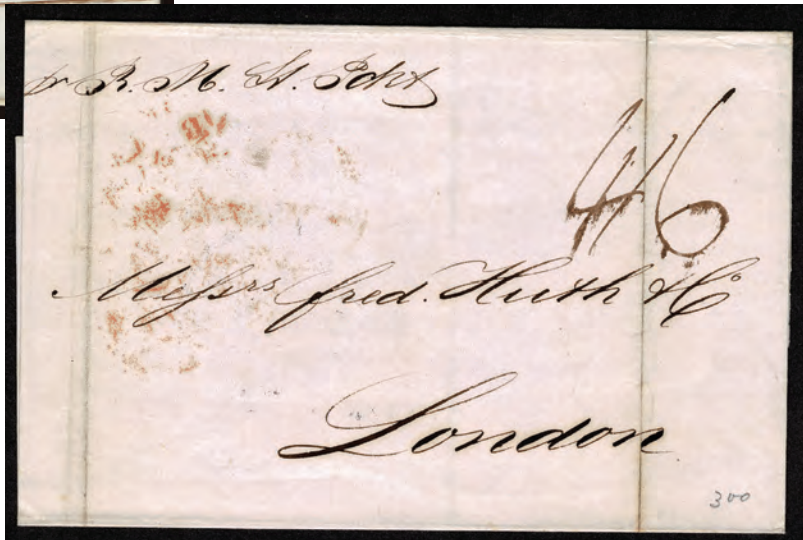 pr R. M. St. Pckt
4/6
Messrs fred. Huth & Co
London
300